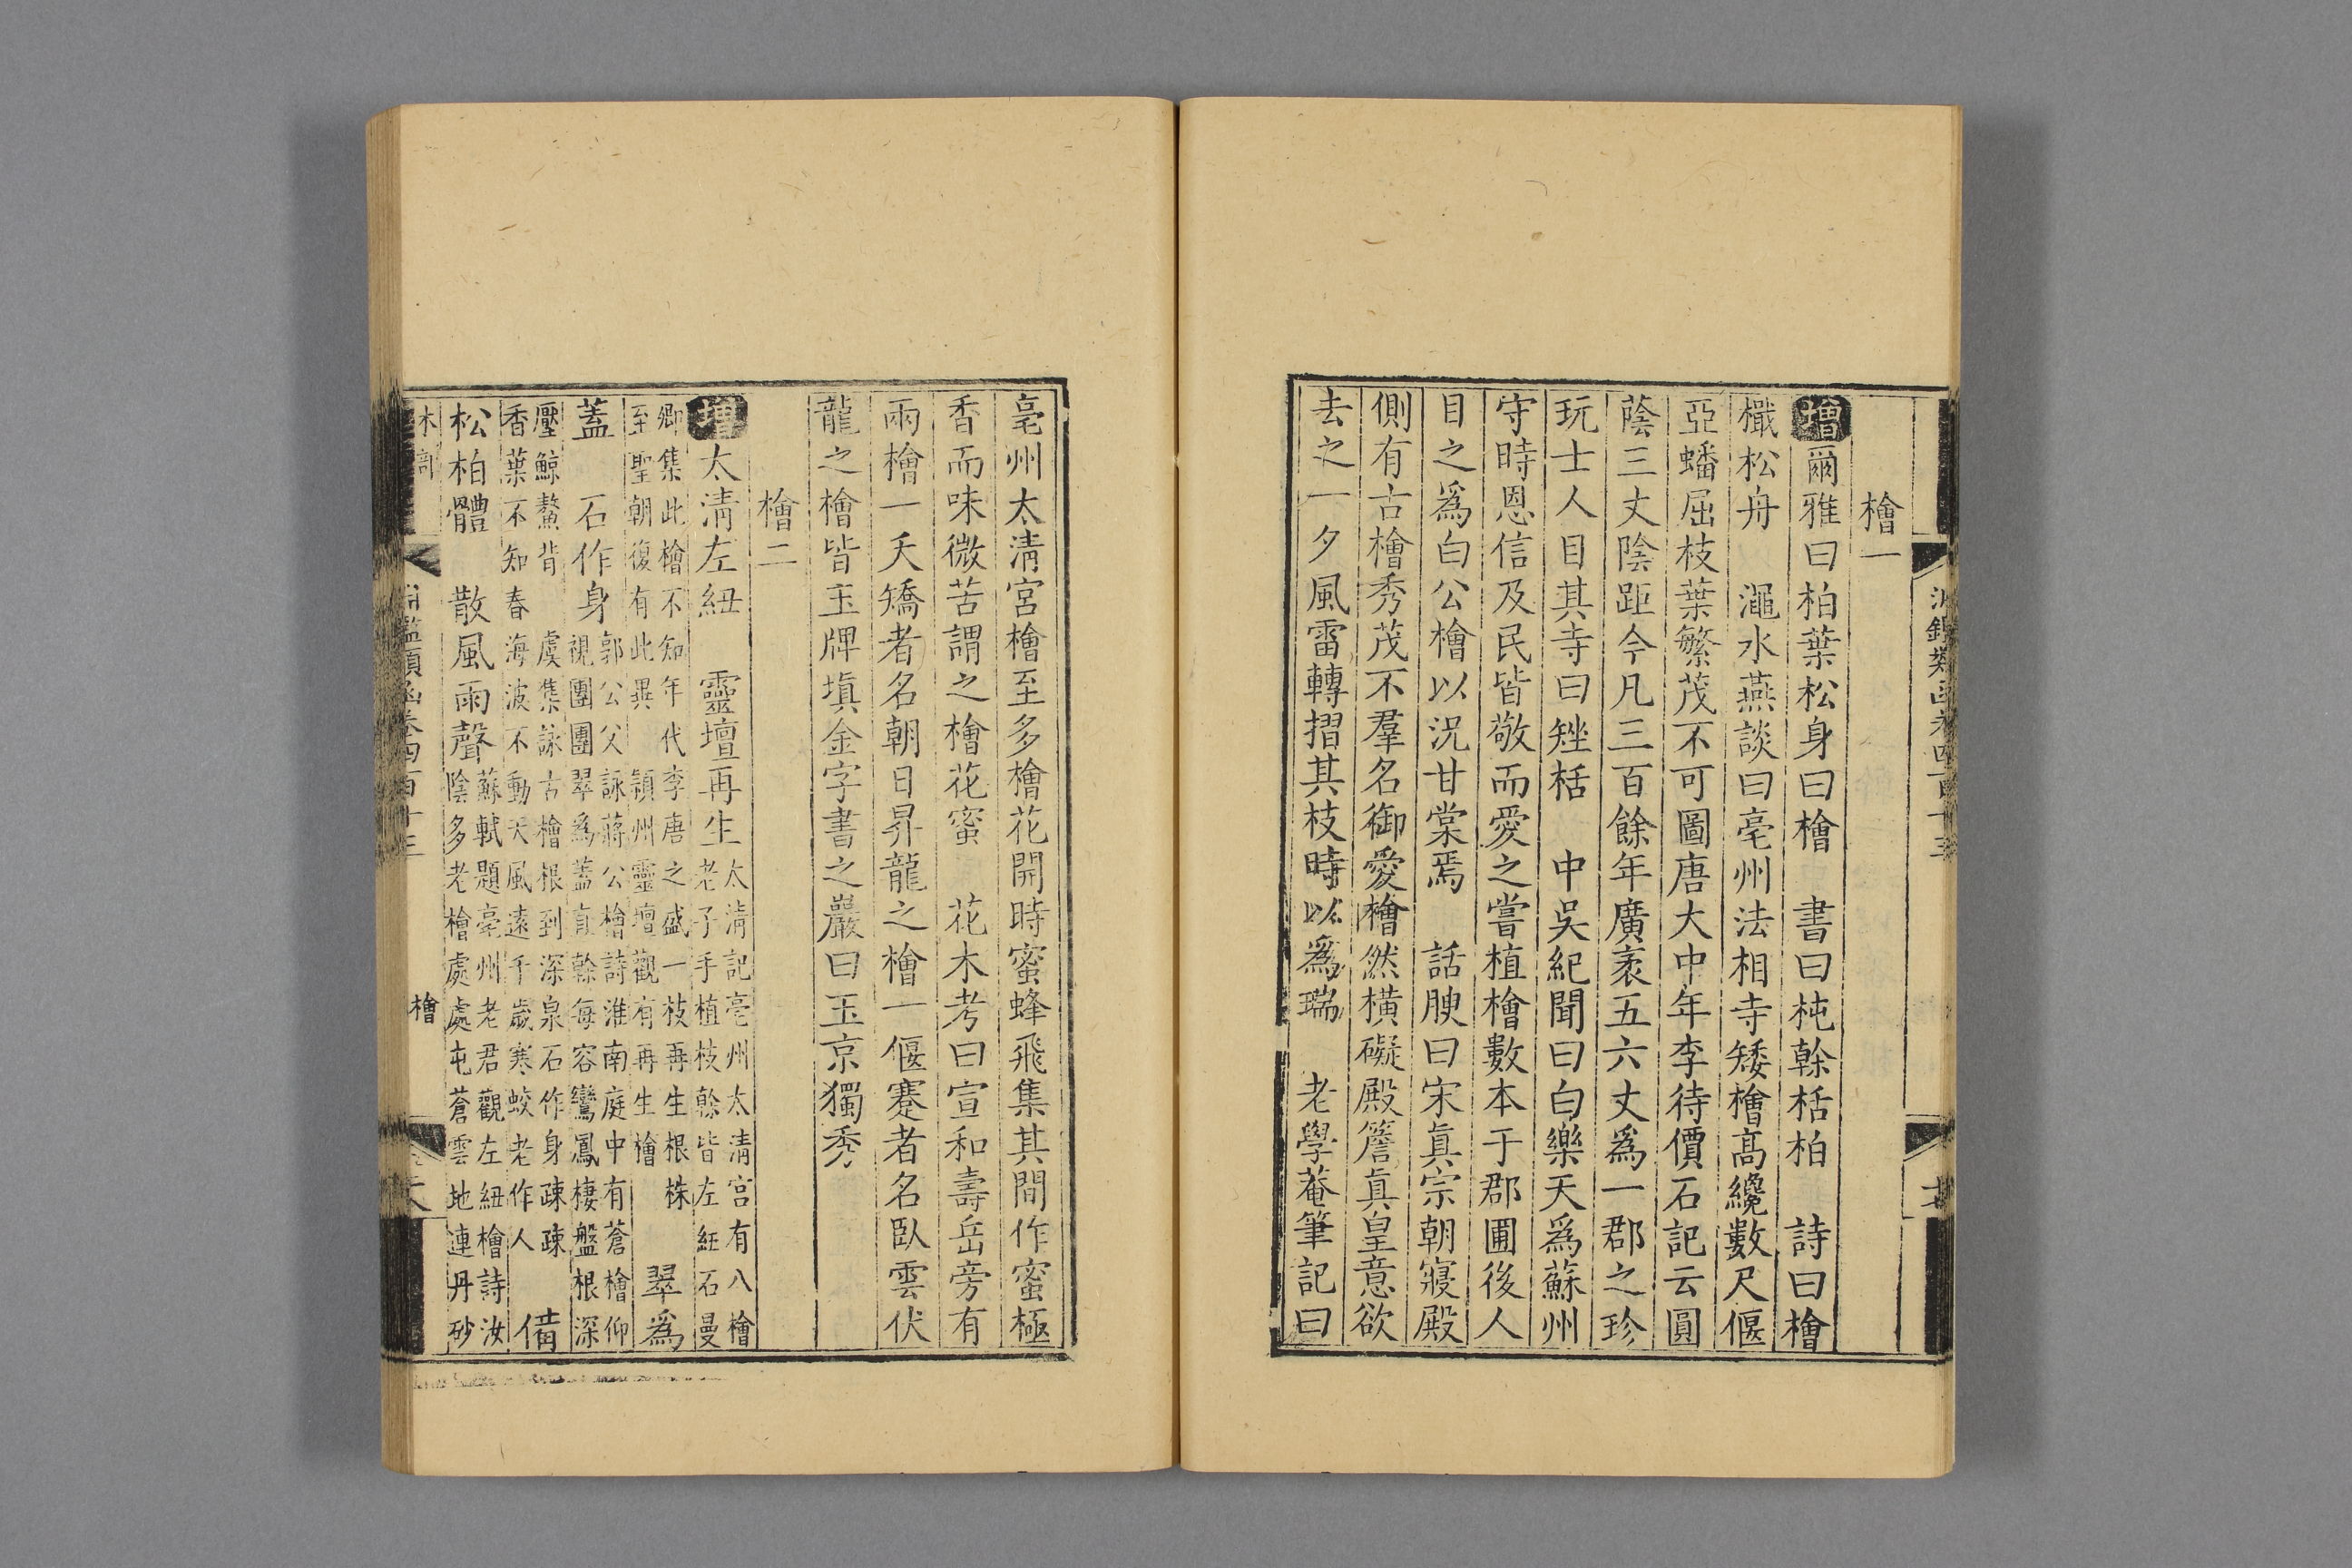 檜一
增爾雅曰柏葉松身曰檜　書曰杶榦栝柏　詩曰檜
檝松舟　澠水燕談曰亳州法相寺矮檜髙纔數尺偃
亞蟠屈枝葉繁茂不可圖唐大中年李待價石記云圓
蔭三丈陰距今凡三百餘年廣袤五六丈爲一郡之珍
玩士人目其寺曰矬栝　中吳紀聞曰白樂天爲蘇州
守時恩信及民皆敬而愛之嘗植檜數本于郡圃後人
目之爲白公檜以況甘棠焉　話腴曰宋眞宗朝寢殿
側有古檜秀茂不羣名御愛檜然橫礙殿簷眞皇意欲
去之一夕風雷轉摺其枝時以爲瑞　老學菴筆記曰
亳州太淸宮檜至多檜花開時蜜蜂飛集其間作蜜極
香而味微苦謂之檜花蜜　花木考曰宣和壽岳旁有
兩檜一夭矯者名朝日昇龍之檜一偃蹇者名臥雲伏
龍之檜皆玉牌塡金字書之巖曰玉京獨秀
檜二
增太淸左紐　靈壇再生太淸記亳州太淸宮有八檜老子手植枝榦皆左紐石曼
卿集此檜不知年代李唐之盛一枝再生根株至聖朝復有此異　潁州靈壇觀有再生檜　翠爲
蓋　石作身郭公父詠蔣公檜詩淮南庭中有蒼檜仰視團團翠爲蓋直榦每容鸞鳳棲盤根深
壓鯨鰲背　虞集詠古檜根到深泉石作身疎疎香葉不知春海波不動天風遠千歲寒蛟老作人　備
松柏體　散風雨聲蘇軾題亳州老君觀左紐檜詩汝陰多老檜處處屯蒼雲地連丹砂
木部　淵鑑類函卷四百十三　檜